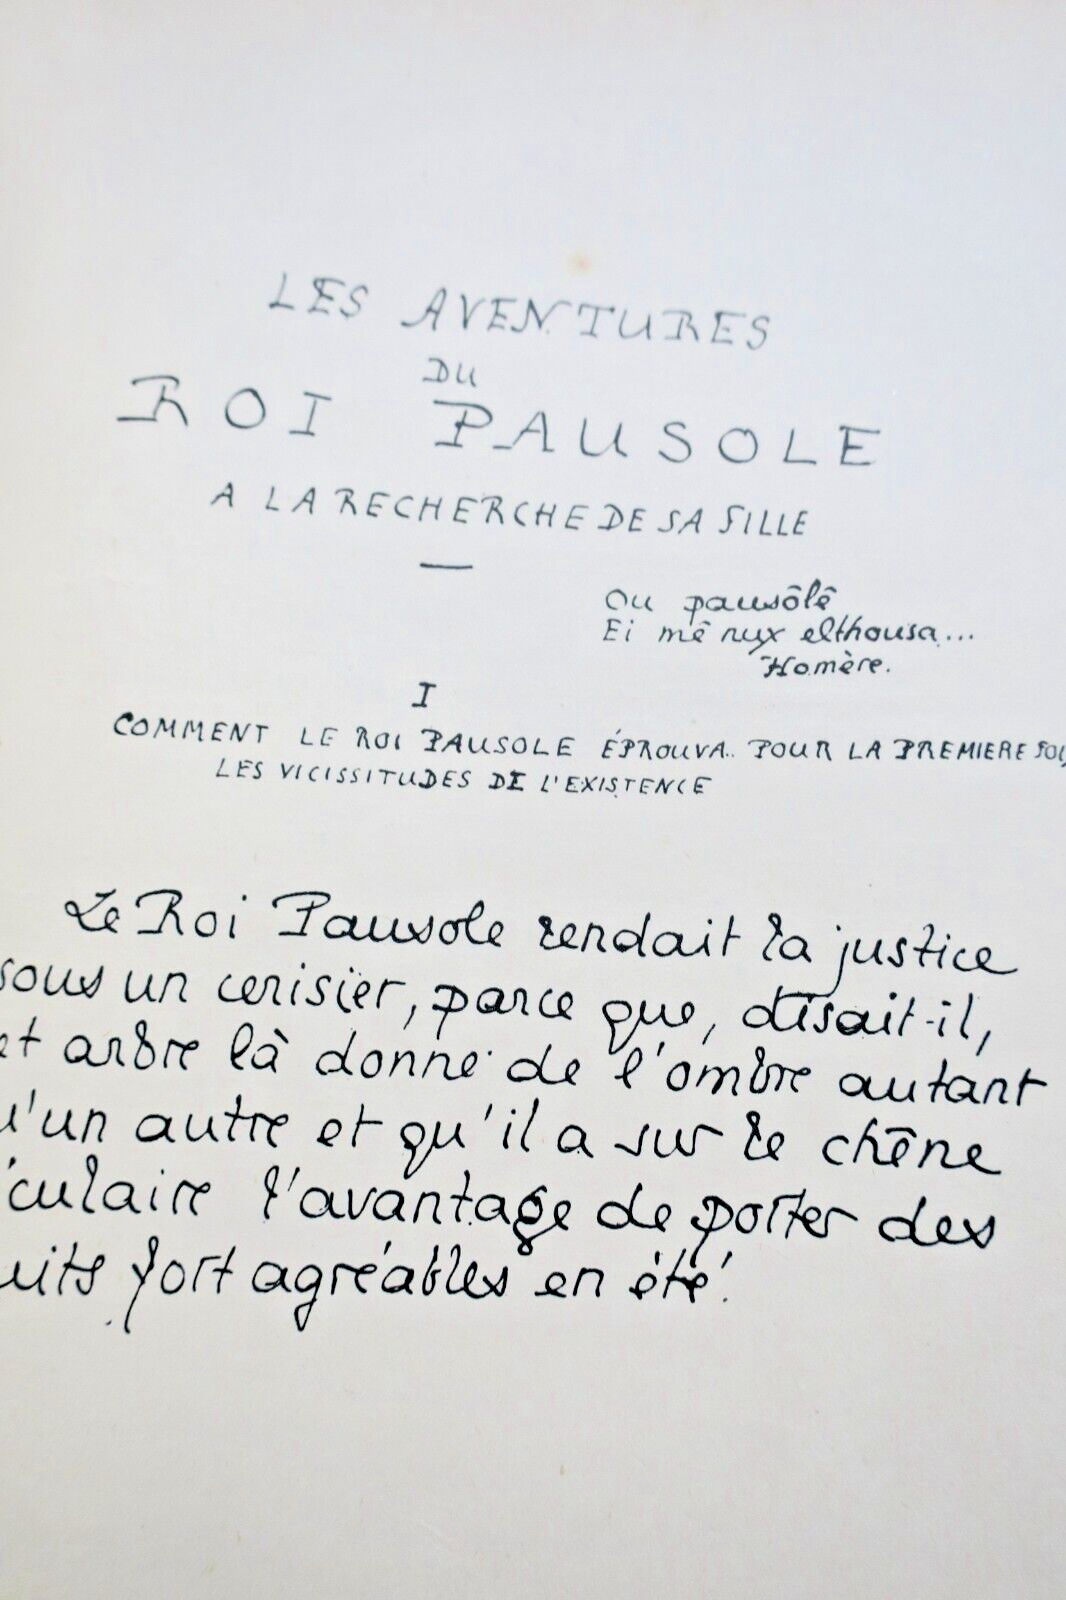 LES AVENTURES
DU
ROI PAUSOLE
A LA RECHERCHE DE SA FILLE
Ou pausôlê
Ei mê nux elthousa...
Homère.
I
COMMENT LE ROI PAUSOLE ÉPROUVA.. POUR LA PREMIERE FOIS
LES VICISSITUDES DE L'EXISTENCE
Le Roi Pausole rendait la justice
sous un cerisier, parce que, disait-il,
et arbre là donne de l'ombre autant
u'un autre et qu'il a sur le chêne
culaire l'avantage de porter des
uits fort agréables en été.